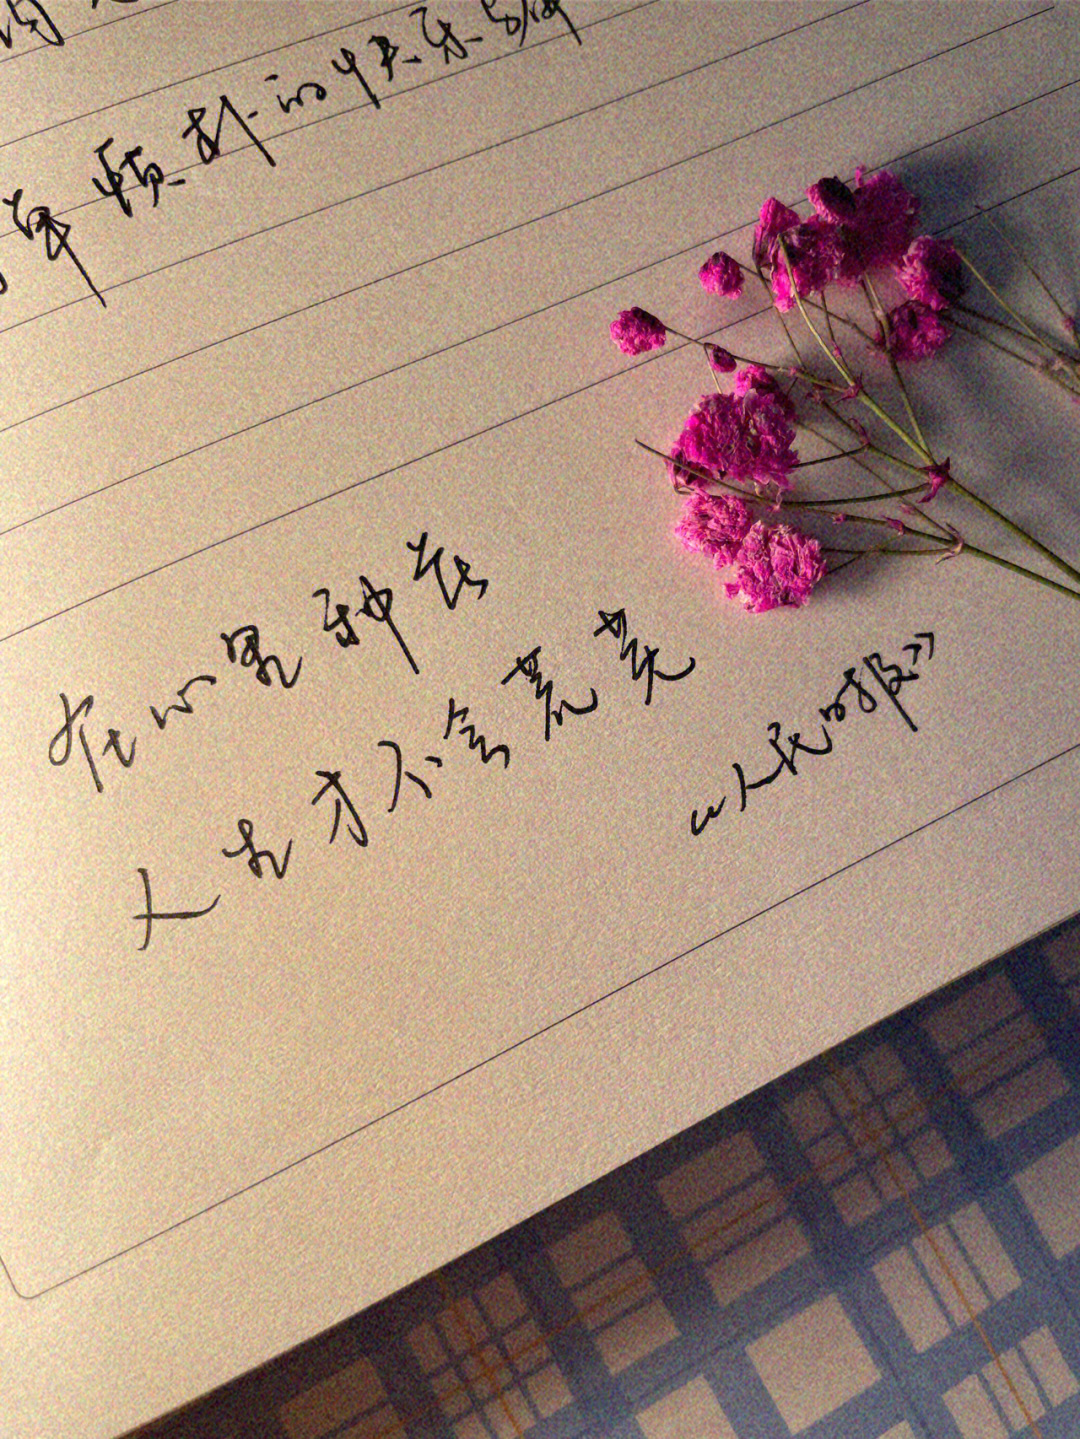 朴的快乐
在心里种花
人生才不会荒芜
《人民日报》